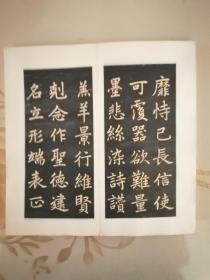 靡恃己長信使
可覆器欲難量
墨悲絲染詩讃
羔羊景行維賢
剋念作聖德建
名立形端表正